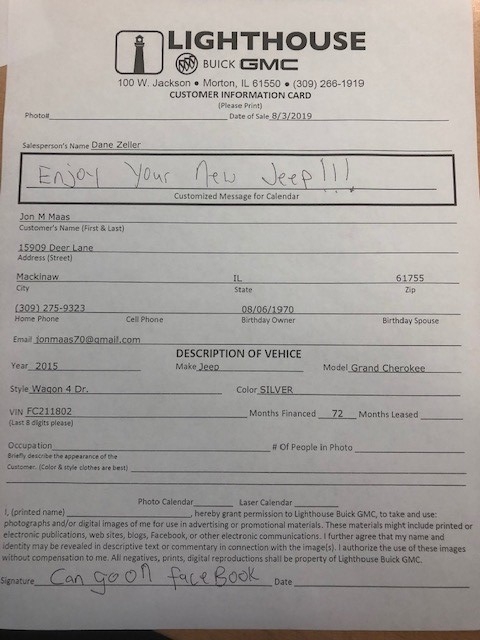 LIGHTHOUSE
BUICK GMC
100 W. Jackson • Morton, IL 61550 • (309) 266-1919
CUSTOMER INFORMATION CARD
(Please Print)
Photo# Date of Sale 8/3/2019
Salesperson's Name Dane Zeller
Enjoy Your New Jeep!!!
Customized Message for Calendar
Jon M Maas
Customer's Name (First & Last)
15909 Deer Lane
Address (Street)
Mackinaw IL 61755
City State Zip
(309) 275-9323 08/06/1970
Home Phone Cell Phone Birthday Owner Birthday Spouse
Email jonmaas70@gmail.com
DESCRIPTION OF VEHICE
Year 2015 Make Jeep Model Grand Cherokee
Style Wagon 4 Dr. Color SILVER
VIN FC211802 Months Financed 72 Months Leased
(Last 8 digits please)
Occupation # Of People In Photo
Briefly describe the appearance of the
Customer. (Color & style clothes are best)
Photo Calendar Laser Calendar
I, (printed name) , hereby grant permission to Lighthouse Buick GMC, to take and use:
photographs and/or digital images of me for use in advertising or promotional materials. These materials might include printed or
electronic publications, web sites, blogs, Facebook, or other electronic communications. I further agree that my name and
identity may be revealed in descriptive text or commentary in connection with the image(s). I authorize the use of these images
without compensation to me. All negatives, prints, digital reproductions shall be property of Lighthouse Buick GMC.
Signature Can go on faceBook Date